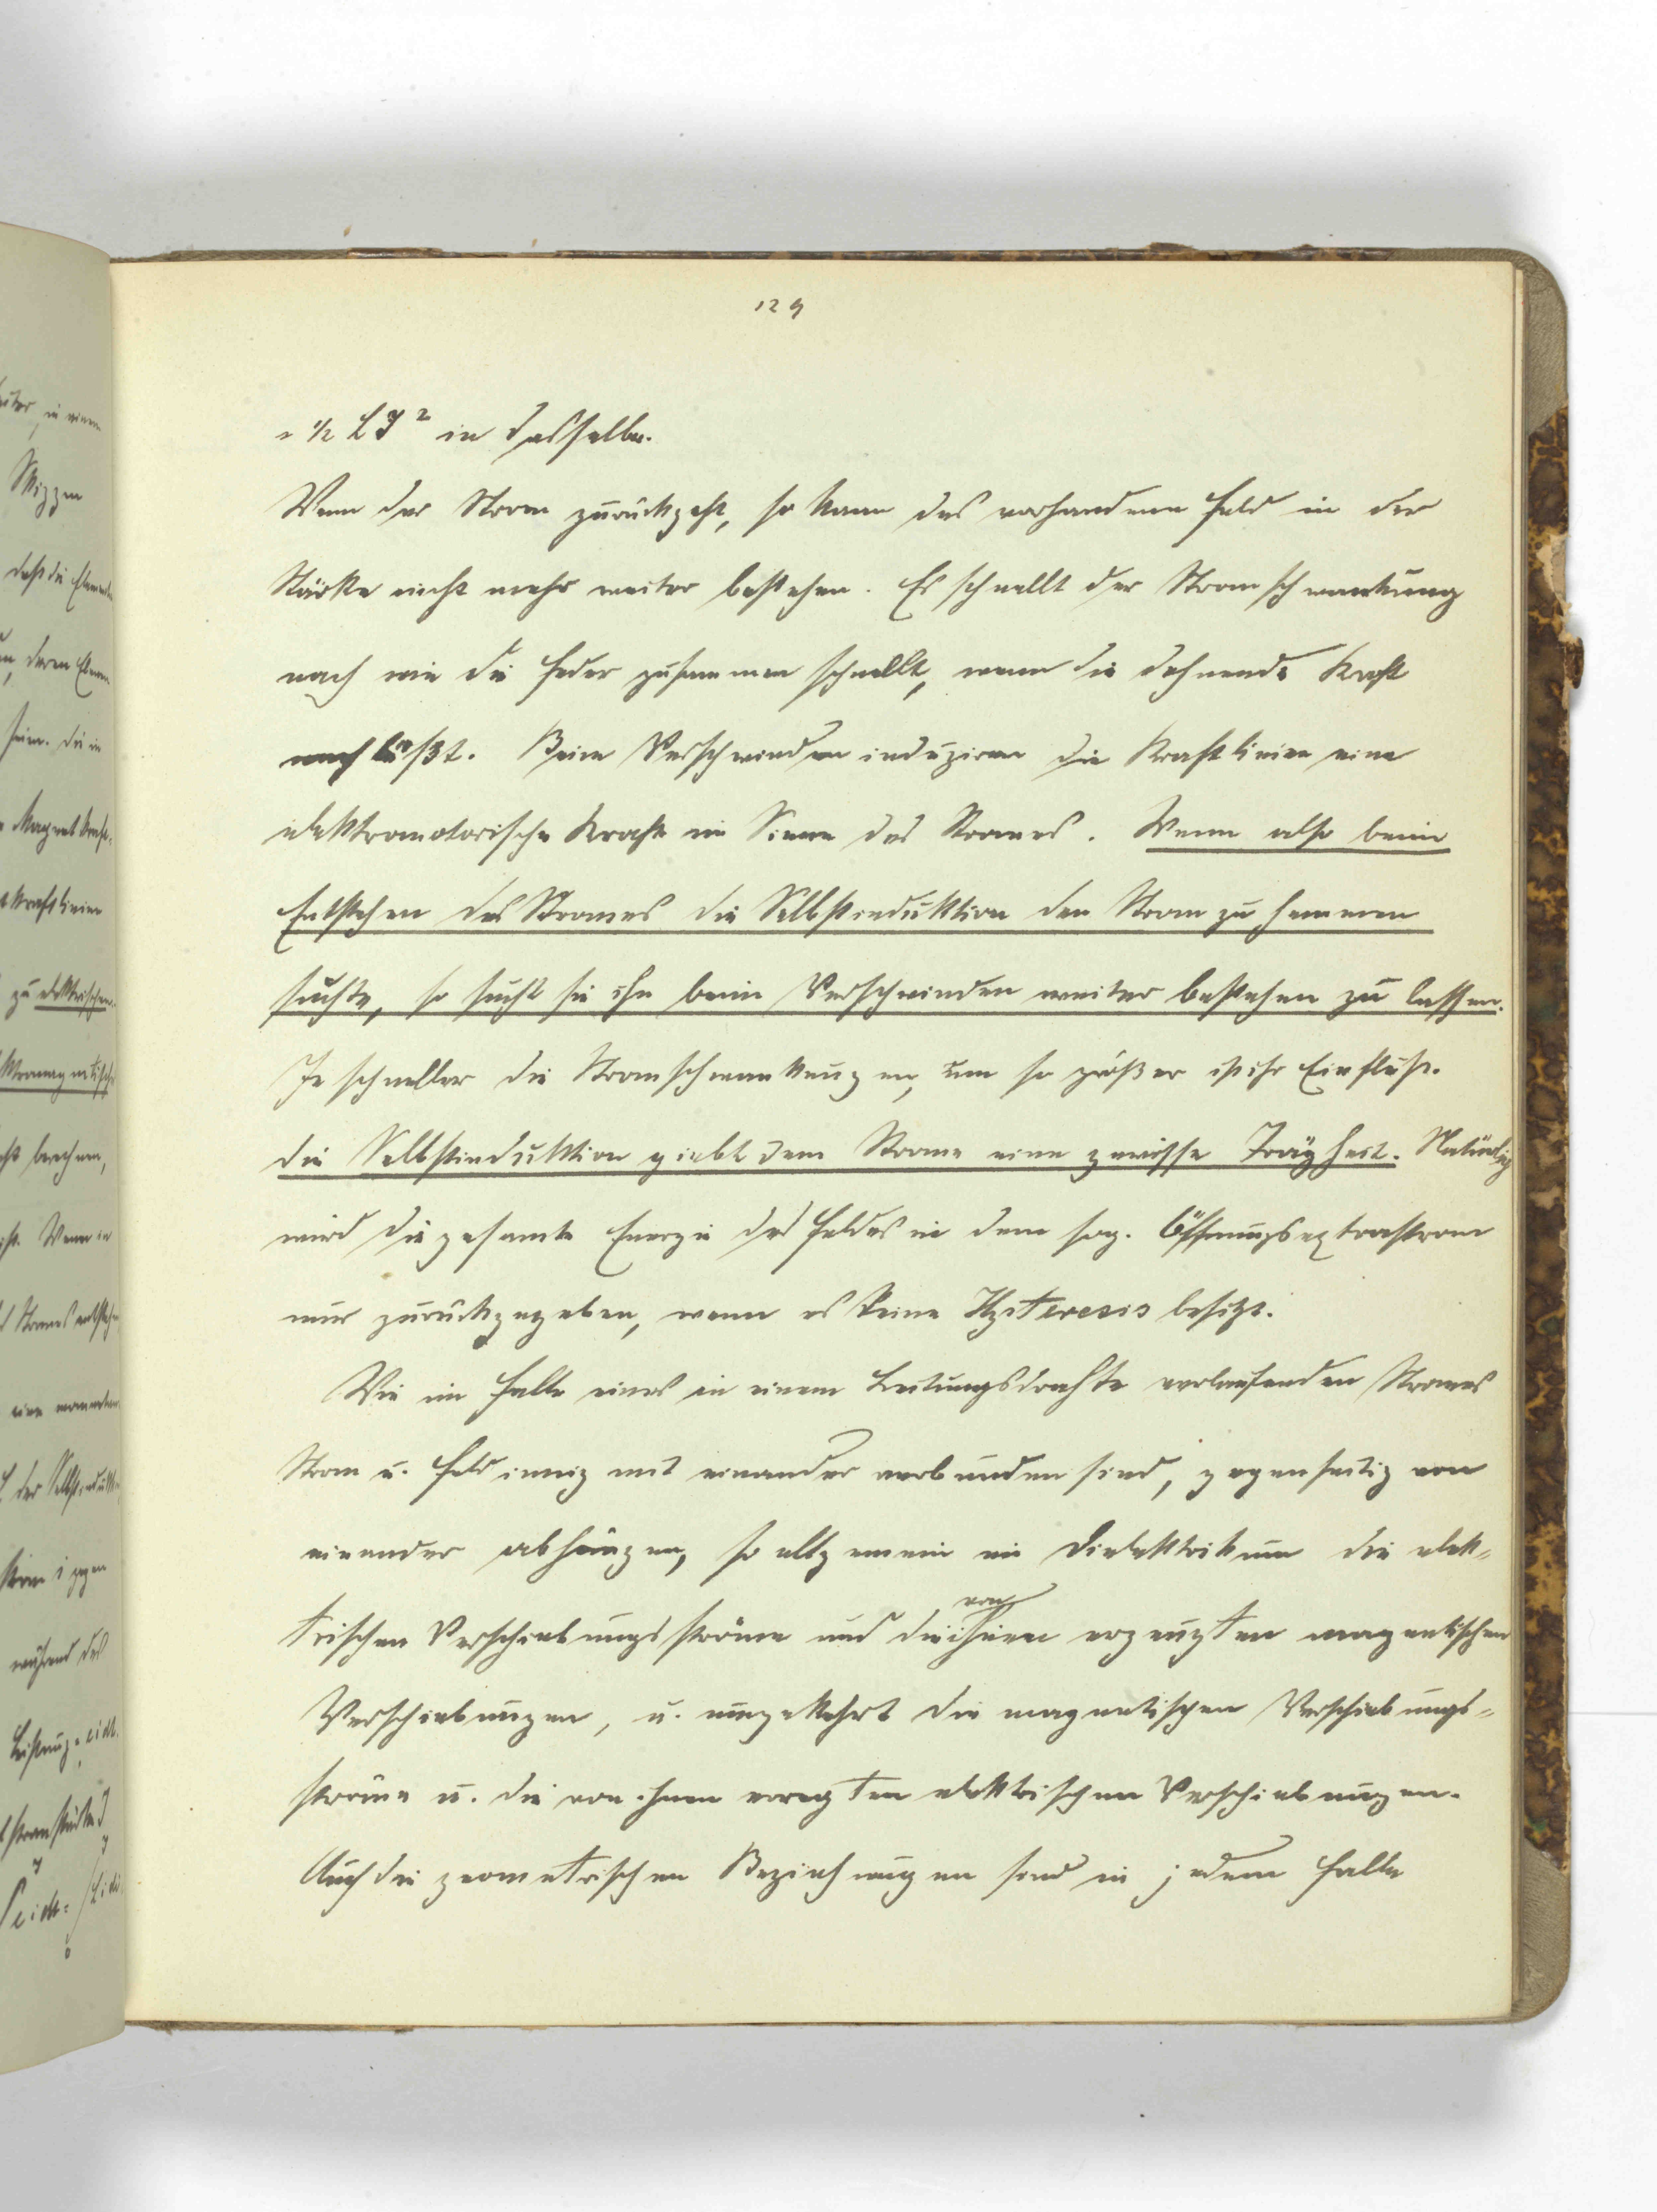 129
= 1/2 L J² in dasselbe.
Wenn der Strom zurückgeht, so kann das vorhandene Feld in der
Stärke nicht mehr weiter bestehen. Es schnellt der Stromschwankung
nach wie die Feder zusammen schnellt, wenn die dehnende Kraft
nachläßt. Beim Verschwinden induzieren die Kraftlinien eine
elektromotorische Kraft im Sinne des Stromes. Wenn also beim
Entstehen des Stromes die Selbstinduktion den Strom zu hemmen
suchte, so sucht sie ihn beim Verschwinden weiter bestehen zu lassen.
Je schneller die Stromschwankungen, um so größer ist ihr Einfluß.
Die Selbstinduktion giebt dem Strome eine gewisse Trägheit. Natürlich
wird die gesamte Energie des Feldes in dem sog. Öffnungsextrastrom
nur zurückgegeben, wenn es keine Hysteresis besitzt.
Wie im Falle eines in einem Leitungsdrahte verlaufenden Stromes
Strom u. Feld innig mit einander verbunden sind, gegenseitig von
einander abhängen, so allgemein im Dielektrikum die elek-
trischen Verschiebungsströme und die von ihnen erzeugten magnetischen
Verschiebungen, u. umgekehrt die magnetischen Verschiebungs-
ströme u. die von ihnen erregten elektrischen Verschiebungen.
Auch die geometrischen Beziehungen sind in jedem Falle